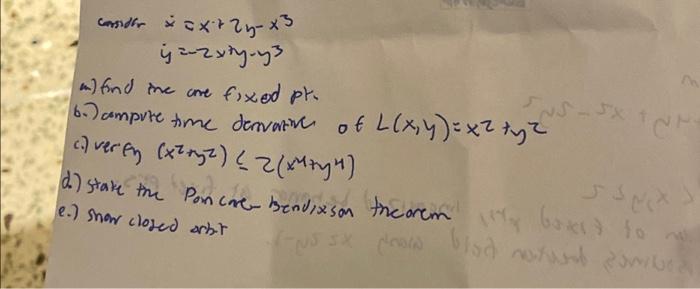 consider ẋ = x + 2y - x³
ẏ = -2x + y - y³
a.) find the one fixed pt.
b.) compute time derivative of L(x,y) = x² + y²
c.) verify (x² + y²) ≤ 2(x⁴ + y⁴)
d.) state the Poincare-bendixson theorem
e.) show closed orbit